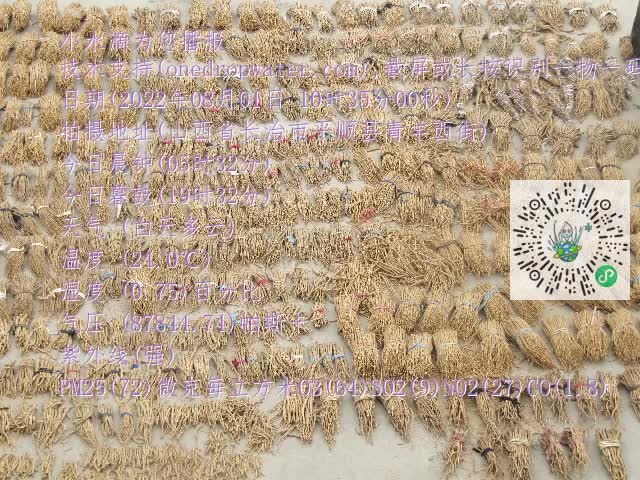 小水滴为您播报
技术支持(onedropwater.com) 截屏或长按识别一物一码
日期(2022年08月01日 10时35分00秒)
拍摄地址(山西省长治市平顺县青羊西街)
今日晨钟(05时32分)
今日暮鼓(19时32分)
天气 (白天多云)
温度 (24.0℃)
湿度 (0.75)百分比
气压 (87844.74)帕斯卡
紫外线(强)
PM25(72)微克每立方米O3(64)SO2(9)NO2(27)CO(1.8)